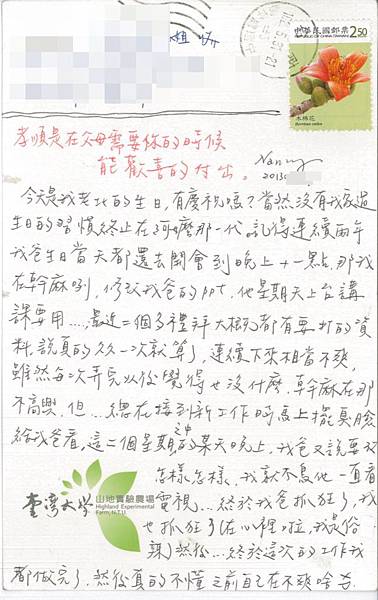 中華民國郵票
REPUBLIC OF CHINA (TAIWAN)
2.50
木棉花
Bombax ceiba
孝順是在父母需要你的時候
能歡喜的付出。
Nancy
2013
今天是我老北的生日,有慶祝嗎?當然沒有我家過
生日的習慣終止在阿嬤那一代,記得連續兩年
我爸生日當天都還去開會到晚上十一點,那我
在幹麻咧,修改我爸的PPT,他星期天上台講
課要用...,最近二個多禮拜大概死都有要打的資
料,說真的久久一次就算了,連續下來相當不爽,
雖然每次弄完以後覺得也沒什麼,幹麻在那
不高興,但...總在接到新工作時馬上擺臭臉
給我爸看,這二個星期之中的某天晚上,我爸又說要改
怎樣怎樣,我就不鳥他一直看
電視...終於我爸抓狂了,我
也抓狂了(在心裡啦,我是俗
辣)然後...終於這次的工作我
都做完了,然後真的不懂之前自己在不爽啥
臺灣大學
山地實驗農場
Highland Experimental
Farm, N.T.U.